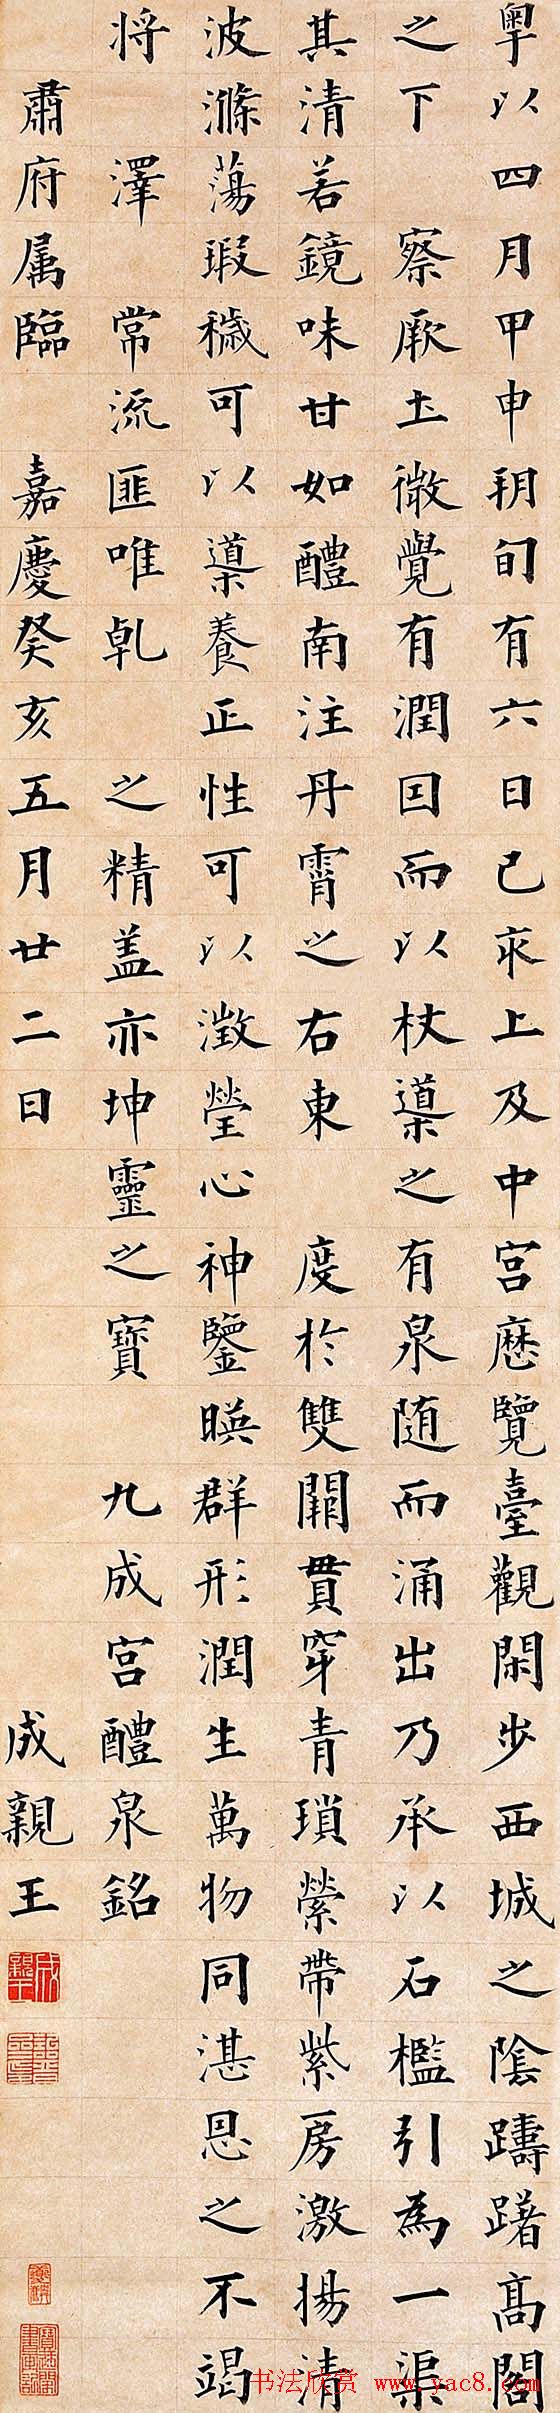 粤以四月甲申朔旬有六日己亥上及中宫歷覽臺觀閑步西城之陰躊躇高閣
之下察厥土微覺有潤因而以杖導之有泉随而涌出乃承以石檻引為一渠
其清若鏡味甘如醴南注丹霄之右東度於雙闕貫穿青瑣縈帶紫房激揚清
波滌蕩瑕穢可以導養正性可以澂瑩心神鑒暎群形潤生萬物同湛恩之不竭
将澤常流匪唯乹之精盖亦坤靈之寶九成宫醴泉銘
肅府属臨嘉慶癸亥五月廿二日成親王
成親王
书法欣赏 www.yac8.com